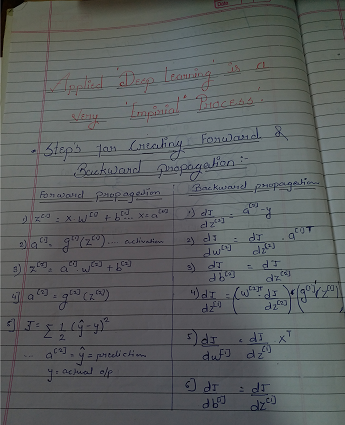 Date
Applied 'Deep Learning' is a
very 'Imperial' Process'.
• Steps for Creating Forward &
Backward propagation :-
Forward propagation
1) z[1] = x · w[1] + b[1] . x = a[0]
2) a[1] = g[1](z[1]) .... activation
3) z[2] = a[1] · w[2] + b[2]
4] a[2] = g[2](z[2])
5] J = Σ 1/2 (ŷ-y)²
... a[2] = ŷ = prediction
y = actual o/p
Backward propagation
1) dJ/dz[2] = a[2] - y
2) dJ/dw[2] = dJ/dz[2] · a[1]T
3) dJ/db[2] = dJ/dz[2]
4) dJ/dz[1] = (w[2]T · dJ/dz[2]) * (g[1]'(z[1])
5) dJ/dw[1] = dJ/dz[1] · xT
6] dJ/db[1] = dJ/dz[1]